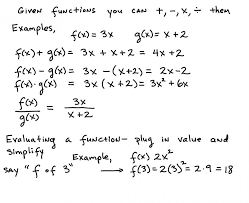 Given functions you can +, -, x, ÷ them
Examples,
f(x) = 3x g(x) = x+2
f(x) + g(x) = 3x + x + 2 = 4x + 2
f(x) - g(x) = 3x - (x+2) = 2x - 2
f(x) · g(x) = 3x (x+2) = 3x² + 6x
f(x)/g(x) = 3x/x+2
Evaluating a function - plug in value and
simplify
Example, f(x) 2x²
say "f of 3" → f(3) = 2(3)² = 2·9 = 18